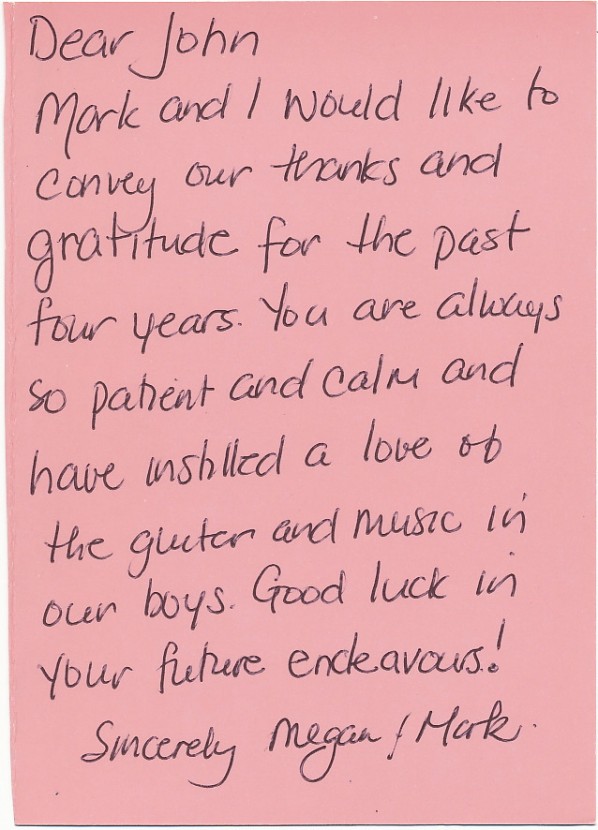 Dear John
Mark and I would like to
convey our thanks and
gratitude for the past
four years. You are always
so patient and calm and
have instilled a love of
the guitar and music in
our boys. Good luck in
your future endeavours!
Sincerely Megan / Mark.